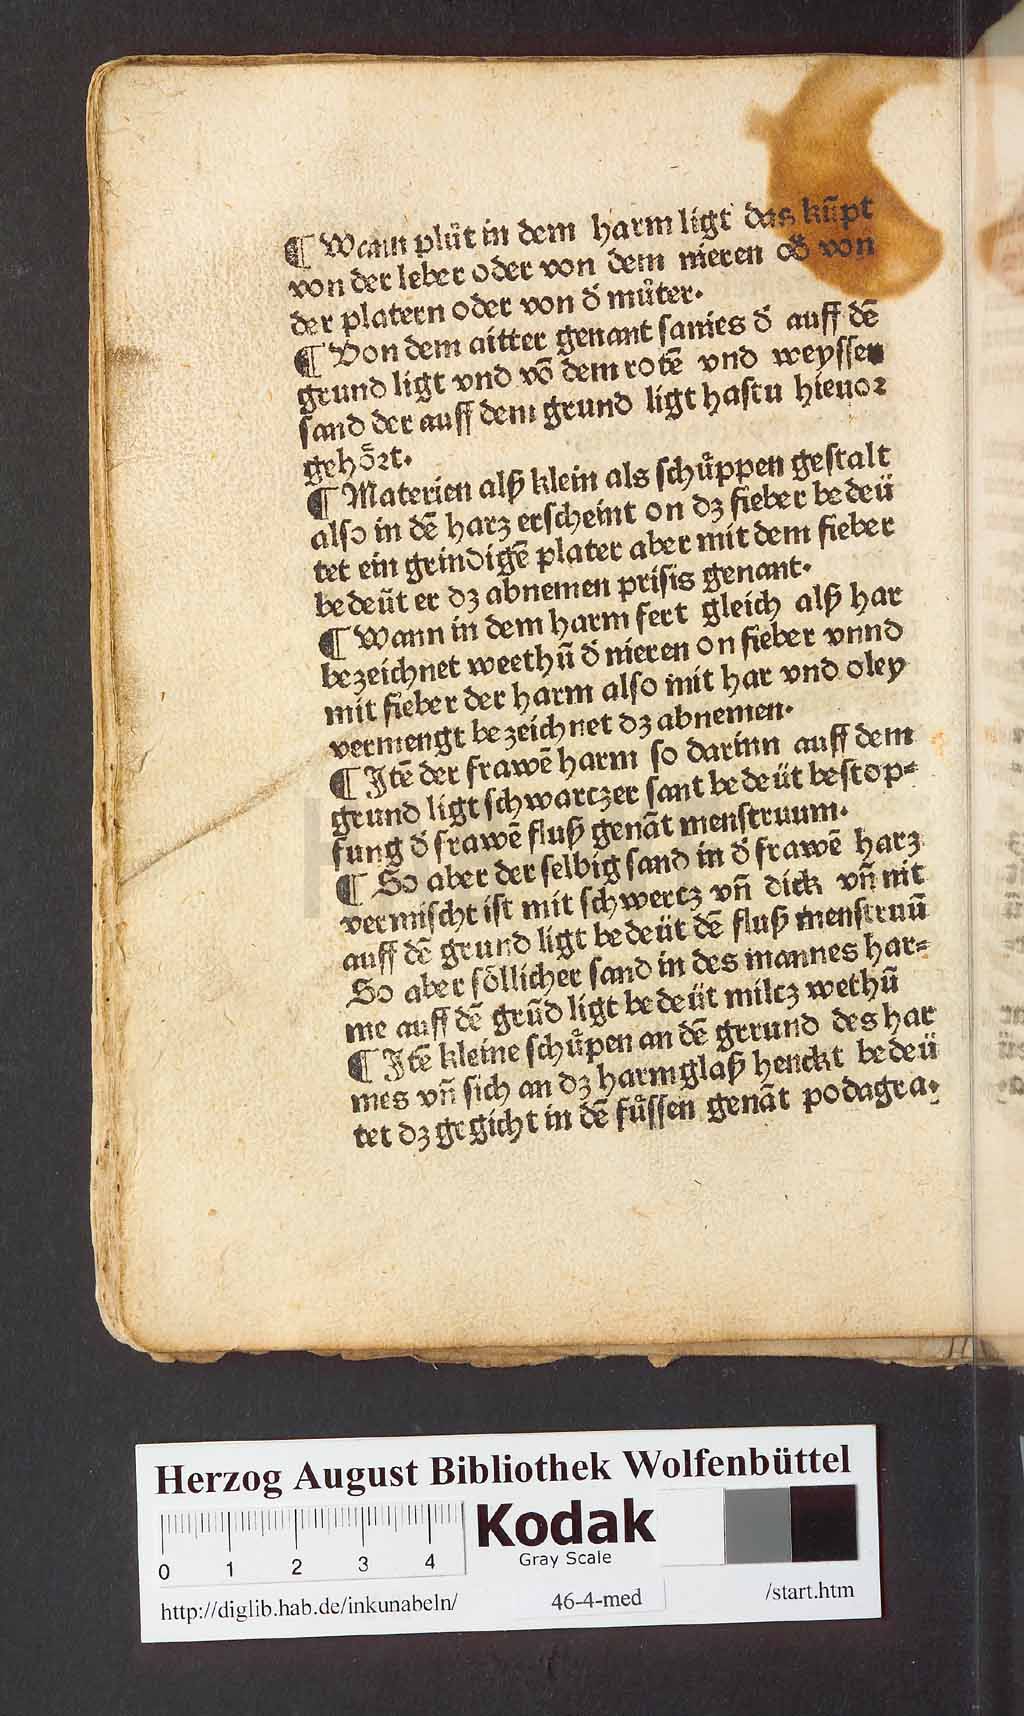 ¶ Wann plůt in dem harm ligt das kūpt
von der leber oder von dem nieren od̄ von
der platern oder von d̄ můter.
¶ Von dem aitter genant sanies d̄ auff dē
grund ligt vnd vō dem rotē vnd weyssen
sand der auff dem grund ligt hastu hieuor
gehört.
¶ Materien alß klein als schůppen gestalt
also in dē harz erscheint on dz fieber bedeü
tet ein grindigē plater aber mit dem fieber
bedeüt er dz abnemen prisis genant.
¶ Wann in dem harm fert gleich alß har
bezeichnet weethū d̄ nieren on fieber vnnd
mit fieber der harm also mit har vnd oley
vermengt bezeichnet dz abnemen.
¶ Itē der frawē harm so darinn auff dem
grund ligt schwarczer sant bedeüt bestop⸗
fung d̄ frawē fluß genāt menstruum.
¶ So aber der selbig sand in d̄ frawē harz
vermischt ist mit schwercz vn̄ dick vn̄ nit
auff dē grund ligt bedeüt dē fluß menstruū
So aber söllicher sand in des mannes har⸗
me auff dē grūd ligt bedeüt milcz wethū
¶ Itē kleine schůpen an dē grrund des har
mes vn̄ sich an dz harmglaß henckt bedeü
tet dz gegicht in dē fůssen genāt podagra.
Herzog August Bibliothek Wolfenbüttel
0 1 2 3 4
Kodak
Gray Scale
http://diglib.hab.de/inkunabeln/ 46-4-med /start.htm